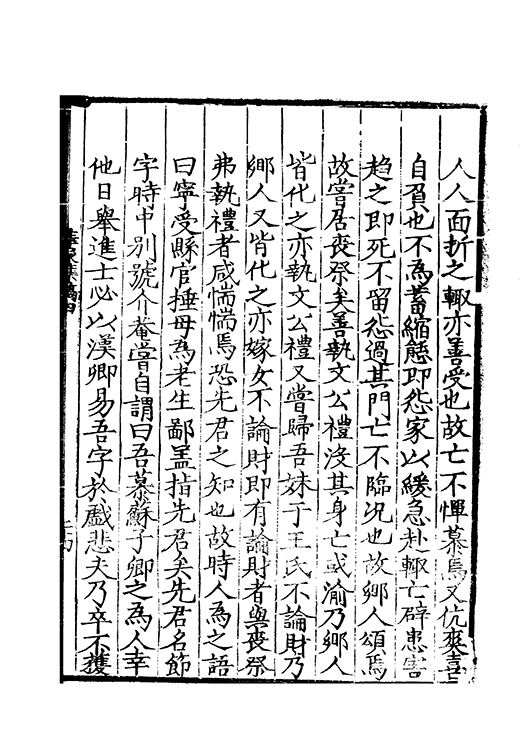 人人面折之輙亦善受也故亡不憚慕焉又伉爽喜
自負也不為蓄縮態即怨家以緩急赴輙亡辟患害
趋之即死不留怨過其門亡不臨况也故鄉人頌焉
故嘗居丧祭矣善執文公禮沒其身亡或渝乃鄉人
皆化之亦執文公禮又嘗歸吾妹于王氏不論財乃
鄉人又皆化之亦嫁女不論財即有論財者與丧祭
弗執禮者咸惴惴焉恐先君之知也故時人為之語
曰寧受縣官捶毋為老生鄙盖指先君矣先君名節
字時中别號介菴嘗自謂曰吾慕蘇子卿之為人幸
他日舉進士必以漢卿易吾字於戲悲夫乃卒不獲